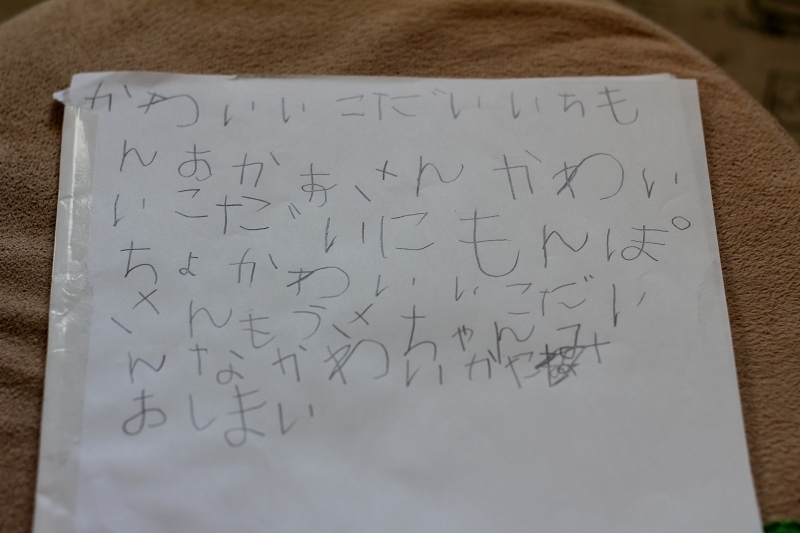 かわいいこだいいちも
んおかあさんかわい
いこだいにもんぱ
ちょかわいいこだい
さんもうさちゃんみ
んなかわいかや
おしまい